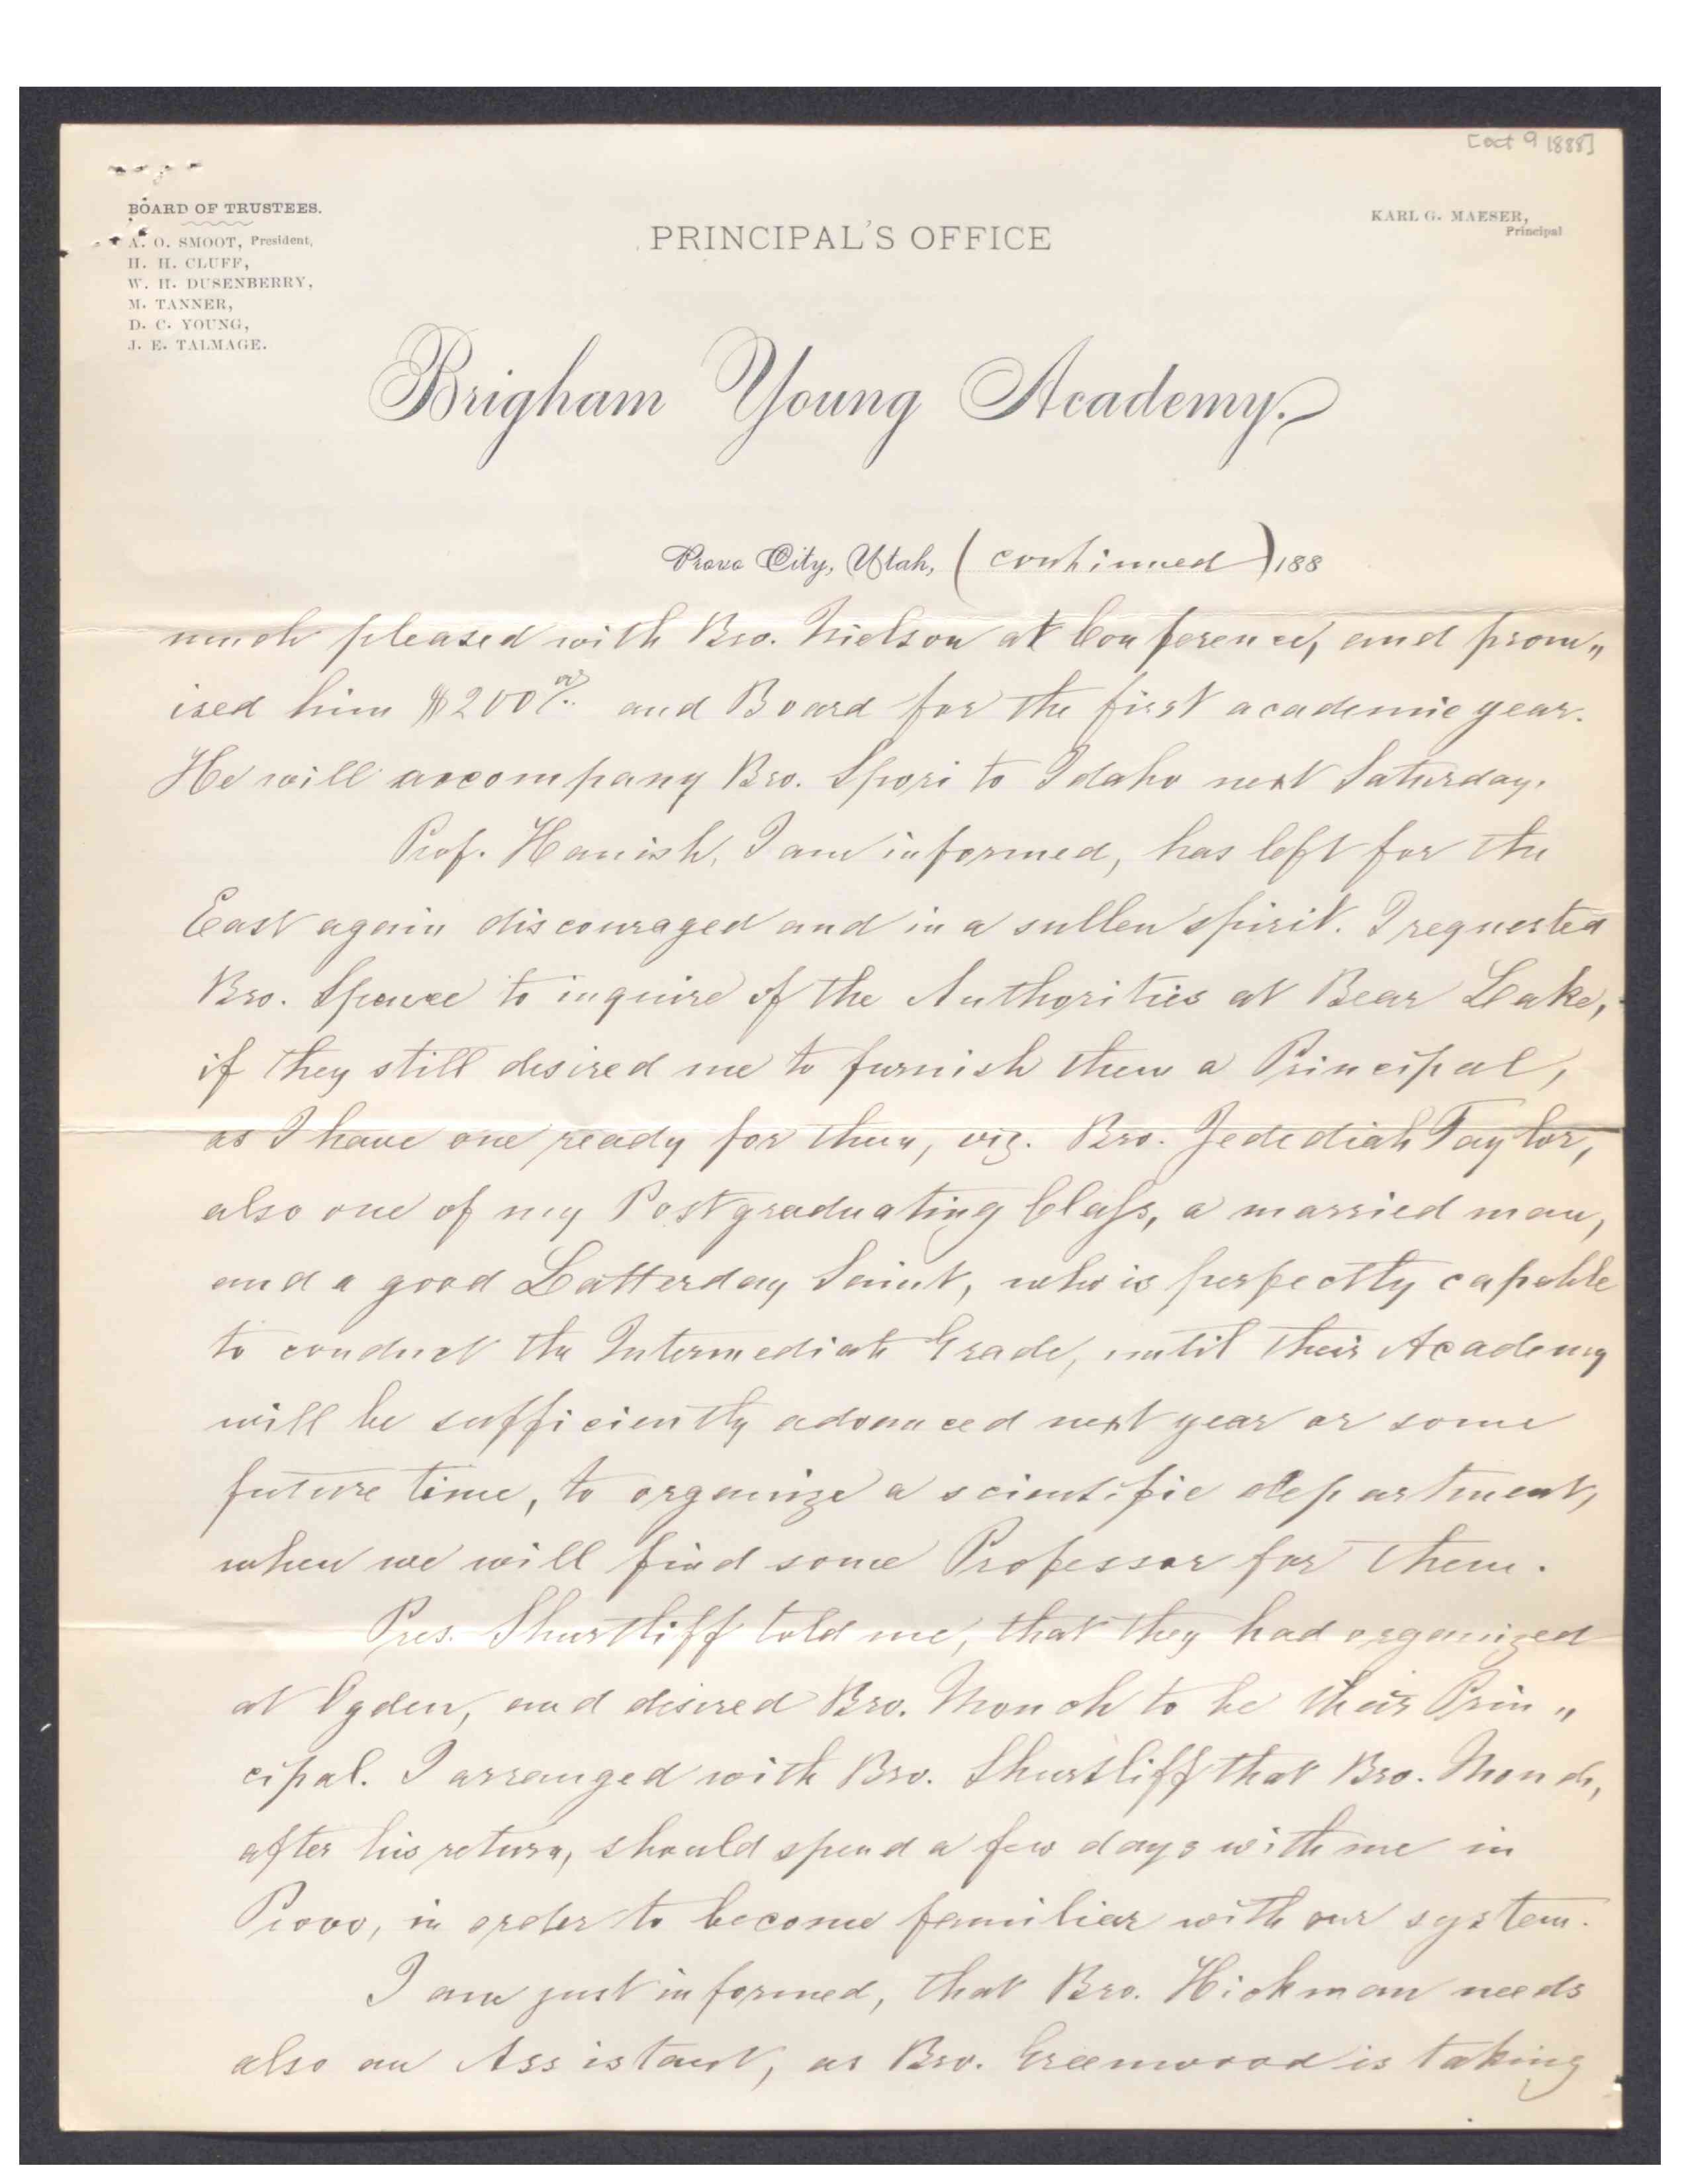 [Oct 9 1888]
BOARD OF TRUSTEES.
A. O. SMOOT, President,
H. H. CLUFF,
W. H. DUSENBERRY,
M. TANNER,
D. C. YOUNG,
J. E. TALMAGE.
PRINCIPAL'S OFFICE
KARL G. MAESER,
Principal
Brigham Young Academy.
Provo City, Utah, (continued) 188
much pleased with Bro. Nielson at Conference, and prom„
ised him $200 00/.. and Board for the first academic year.
He will accompany Bro. Spori to Idaho next Saturday.
Prof. Hanish, I am informed, has left for the
East again discouraged and in a sullen spirit. I requested
Bro. Spence to inquire of the Authorities at Bear Lake,
if they still desired me to furnish them a Principal,
as I have one ready for them, viz. Bro. Jedediah Taylor,
also one of my Postgraduating Class, a married man,
and a good Latterday Saint, who is perfectly capable
to conduct the Intermediate Grade, until their Academy
will be sufficiently advanced next year or some
future time, to organize a scientific department,
when we will find some Professor for them.
Pres. Shurtliff told me, that they had organized
at Ogden, and desired Bro. Monch to be their Prin„
cipal. I arranged with Bro. Shurtliff that Bro. Monch,
after his return, should spend a few days with me in
Provo, in order to become familiar with our system.
I am just informed, that Bro. Hickman needs
also an Assistant, as Bro. Greenwood is taking